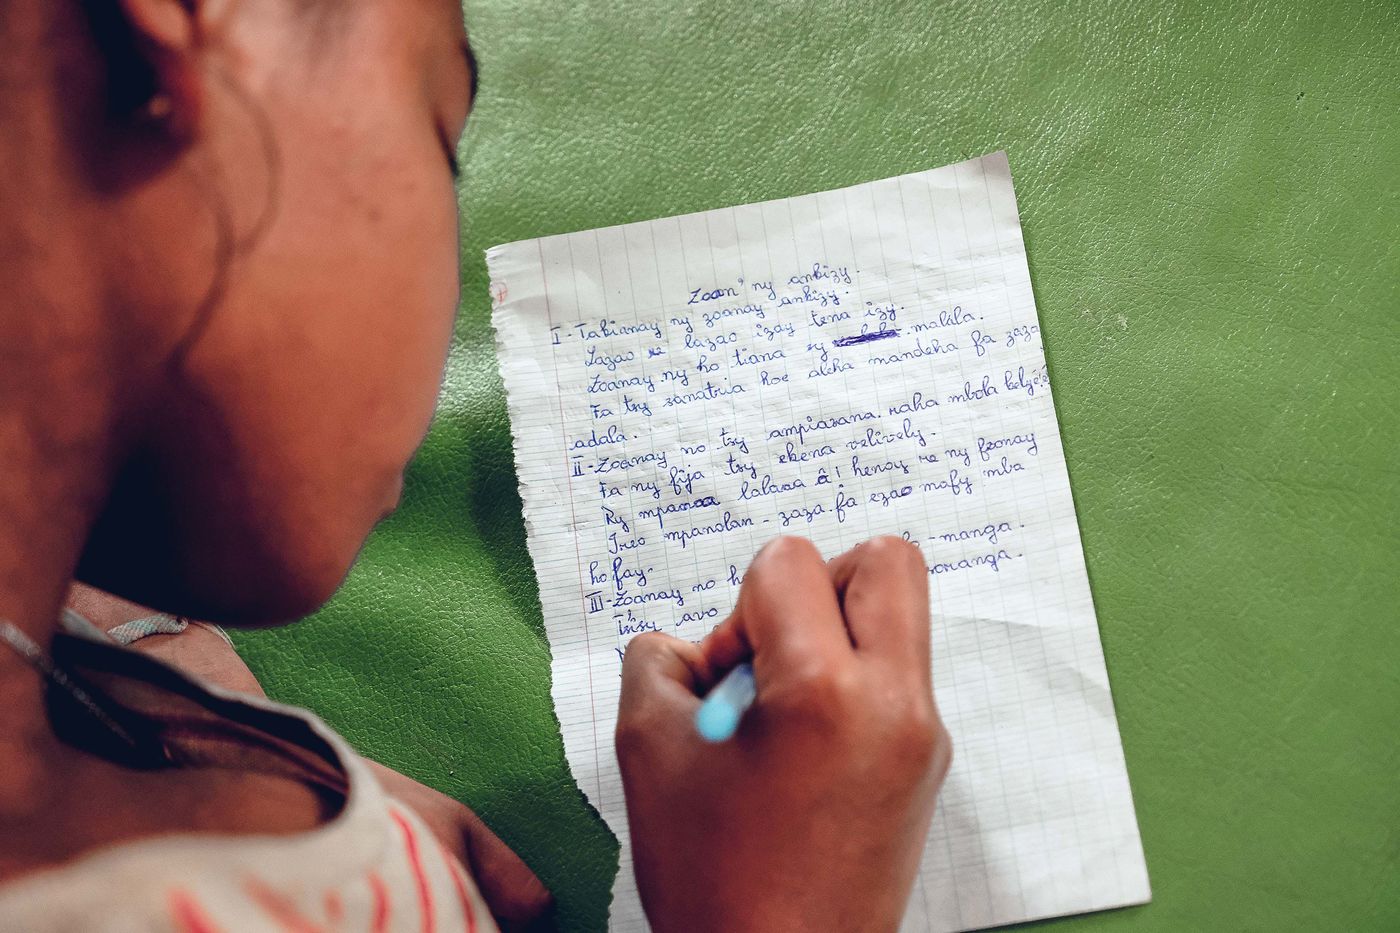 Zoan' ny ankizy.
I - Takianay ny zoanay ankizy.
Lazao lazao izay tena izy.
Zoanay ny ho tiana sy malala.
Fa tsy sanatria hoe aleha mandeha fa zaza
adala.
II - Zoanay no tsy ampiasana raha mbola kely é!
Fa ny fija tsy ekena velively.
Ry mpanao lalàna â! henoy re ny feonay
Ireo mpanolan-zaza fa ezao mafy mba
ho fay.
III - Zoanay no - manga.
Tsisy avo